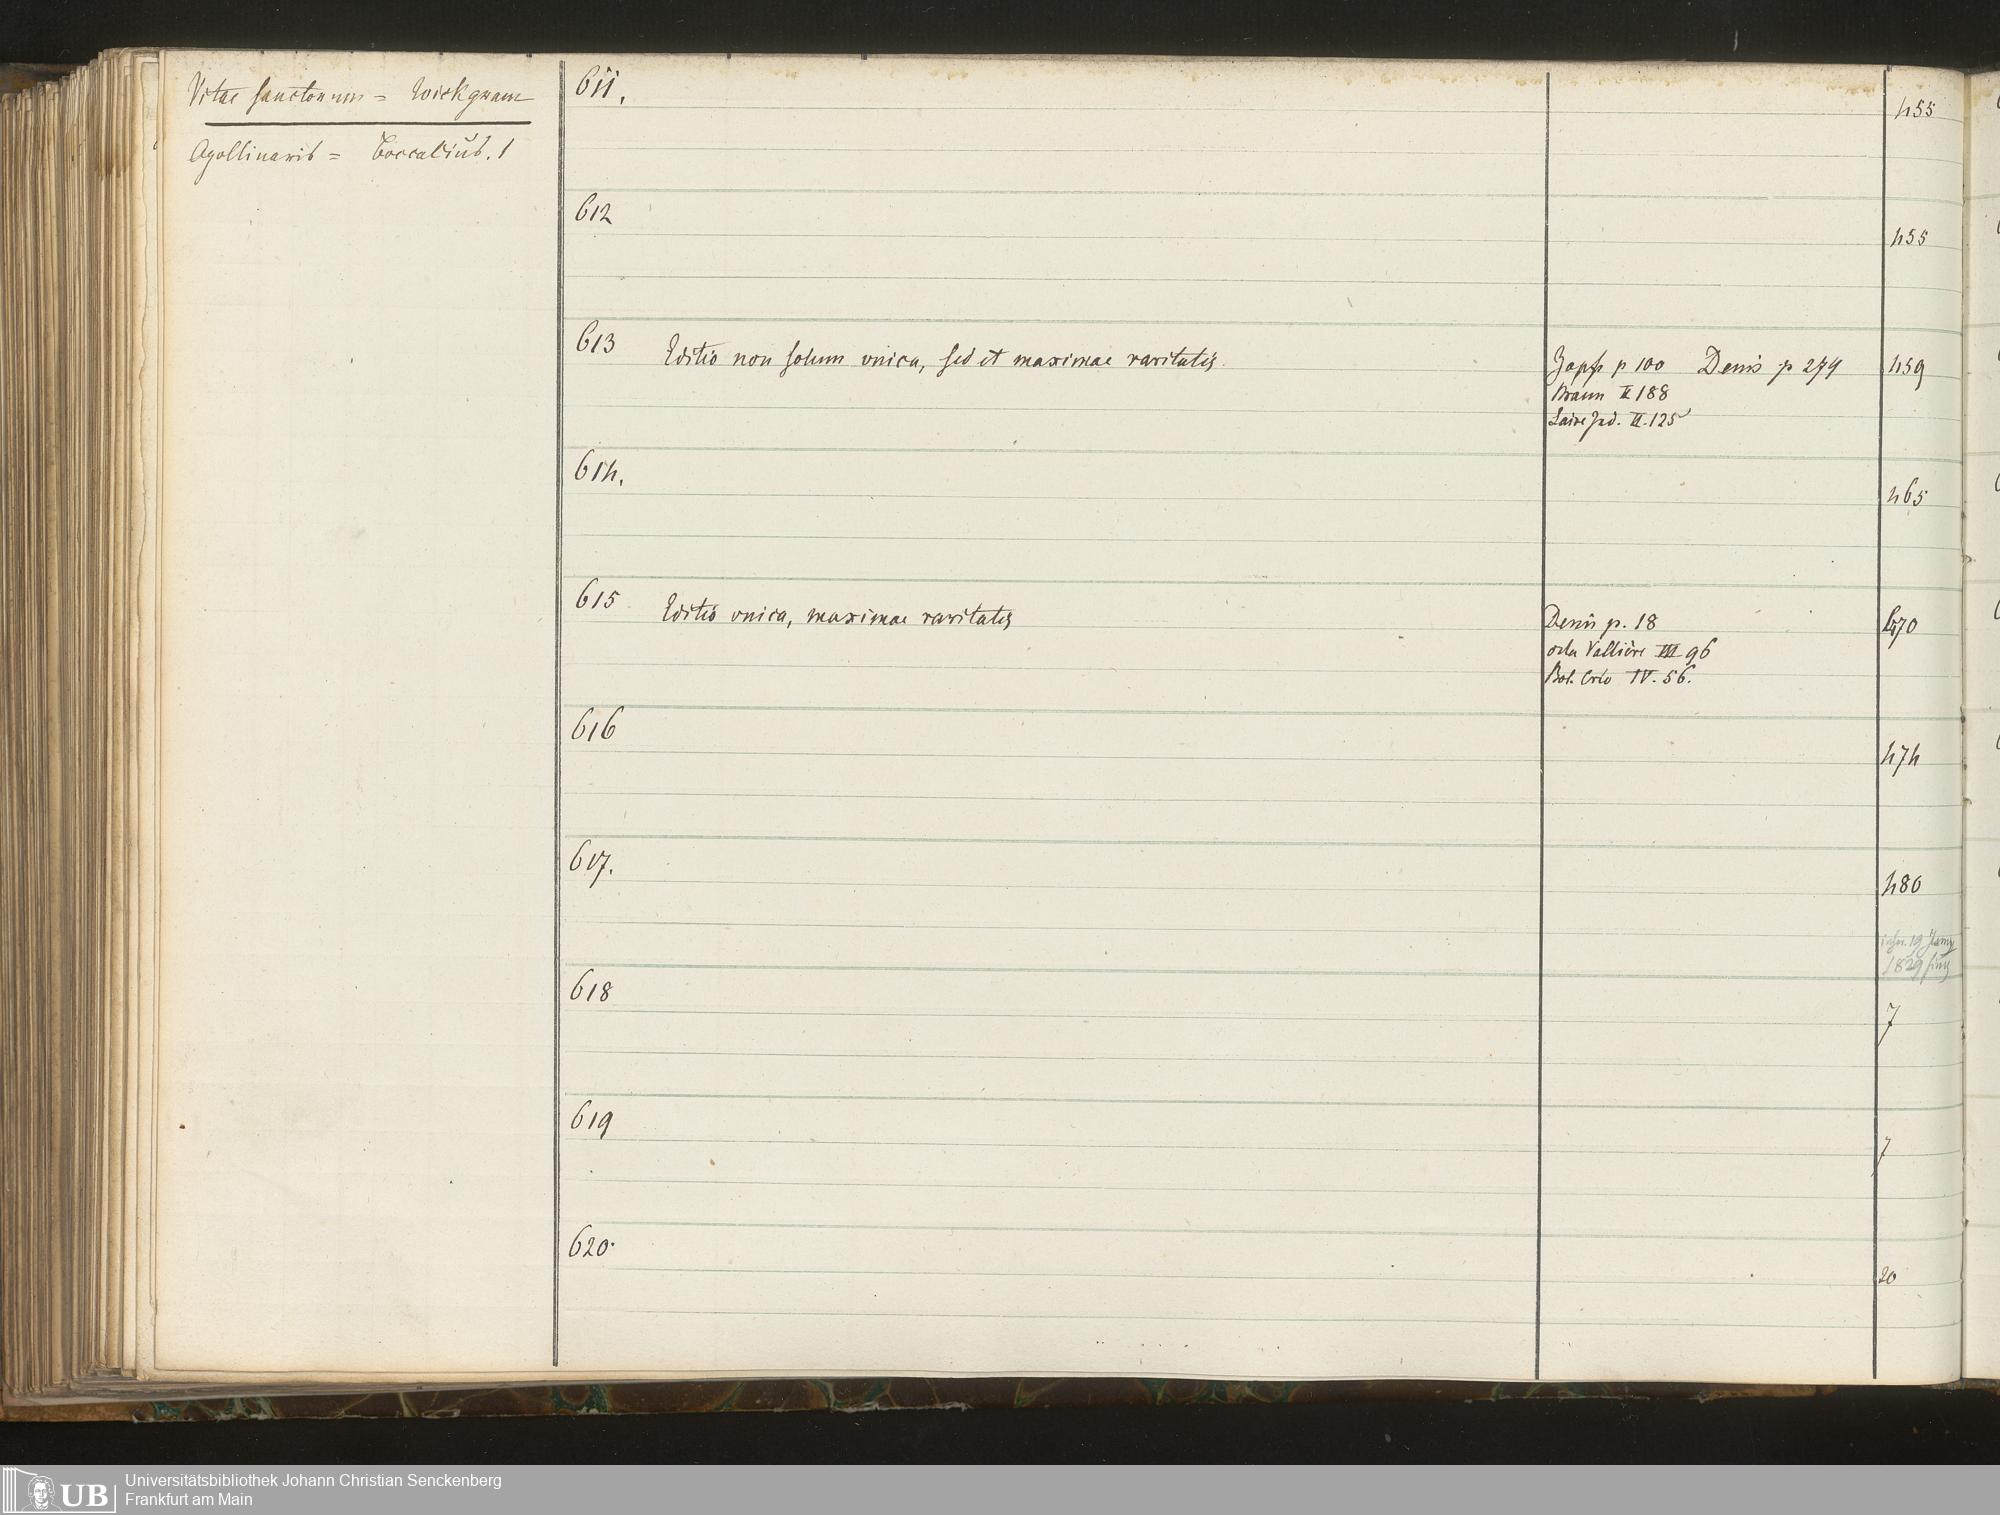 Vitae sanctorum = Wickgram
Apollinaris = Boccatius. 1
611.
455
612
455
613 Editio non solum unica, sed et maximae raritatis.
Zapf p 100 Denis p 279
459
Braun II 188
Laire Ind. II. 125
614.
465
615 Editio unica, maximae raritatis
Denis p. 18
470
de la Valliere III 96
IV. 56.
616
474
617.
480
1829
618
7
619
7
620.
20
Universitätsbibliothek Johann Christian Senckenberg
Frankfurt am Main
UB